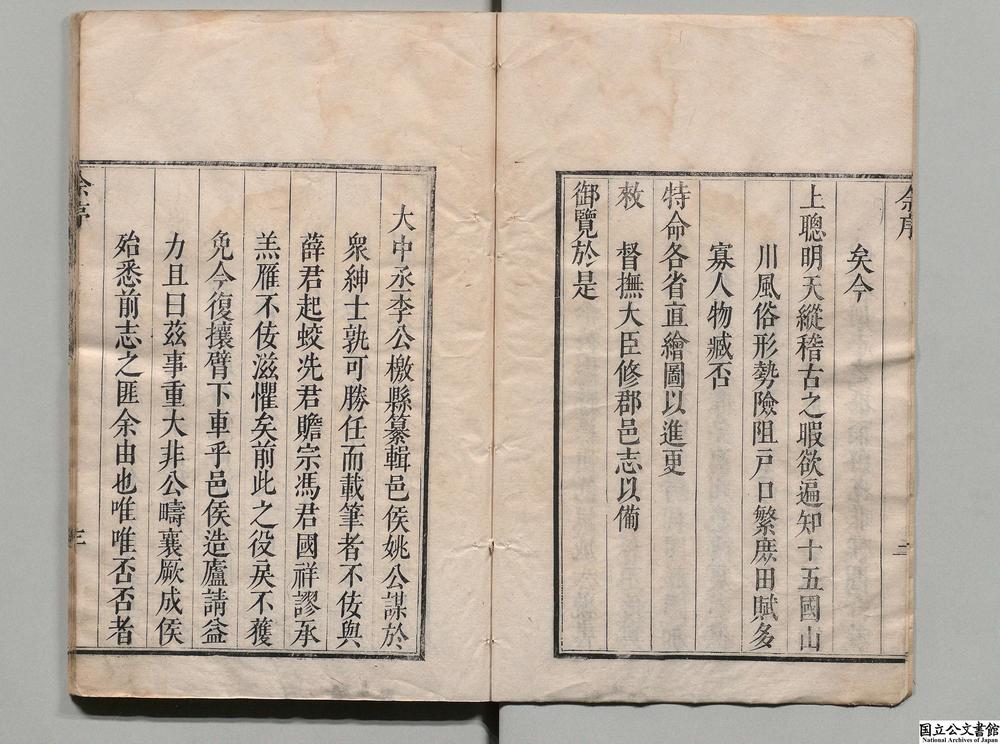 余序
二
矣今
上聰明天縱稽古之暇欲遍知十五國山
川風俗形勢險阻戶口繁庶田賦多
寡人物臧否
特命各省直繪圖以進更
敕　督撫大臣修郡邑志以備
御覽於是
大中丞李公檄縣纂輯邑侯姚公謀於
衆紳士孰可勝任而載筆者不佞與
薛君起蛟冼君贍宗馮君國祥謬承
羔雁不佞滋懼矣前此之役戾不獲
免今復攘臂下車乎邑侯造廬請益
力且曰茲事重大非公疇襄厥成侯
殆悉前志之匪余由也唯唯否否者
余序
三
国立公文書館
National Archives of Japan